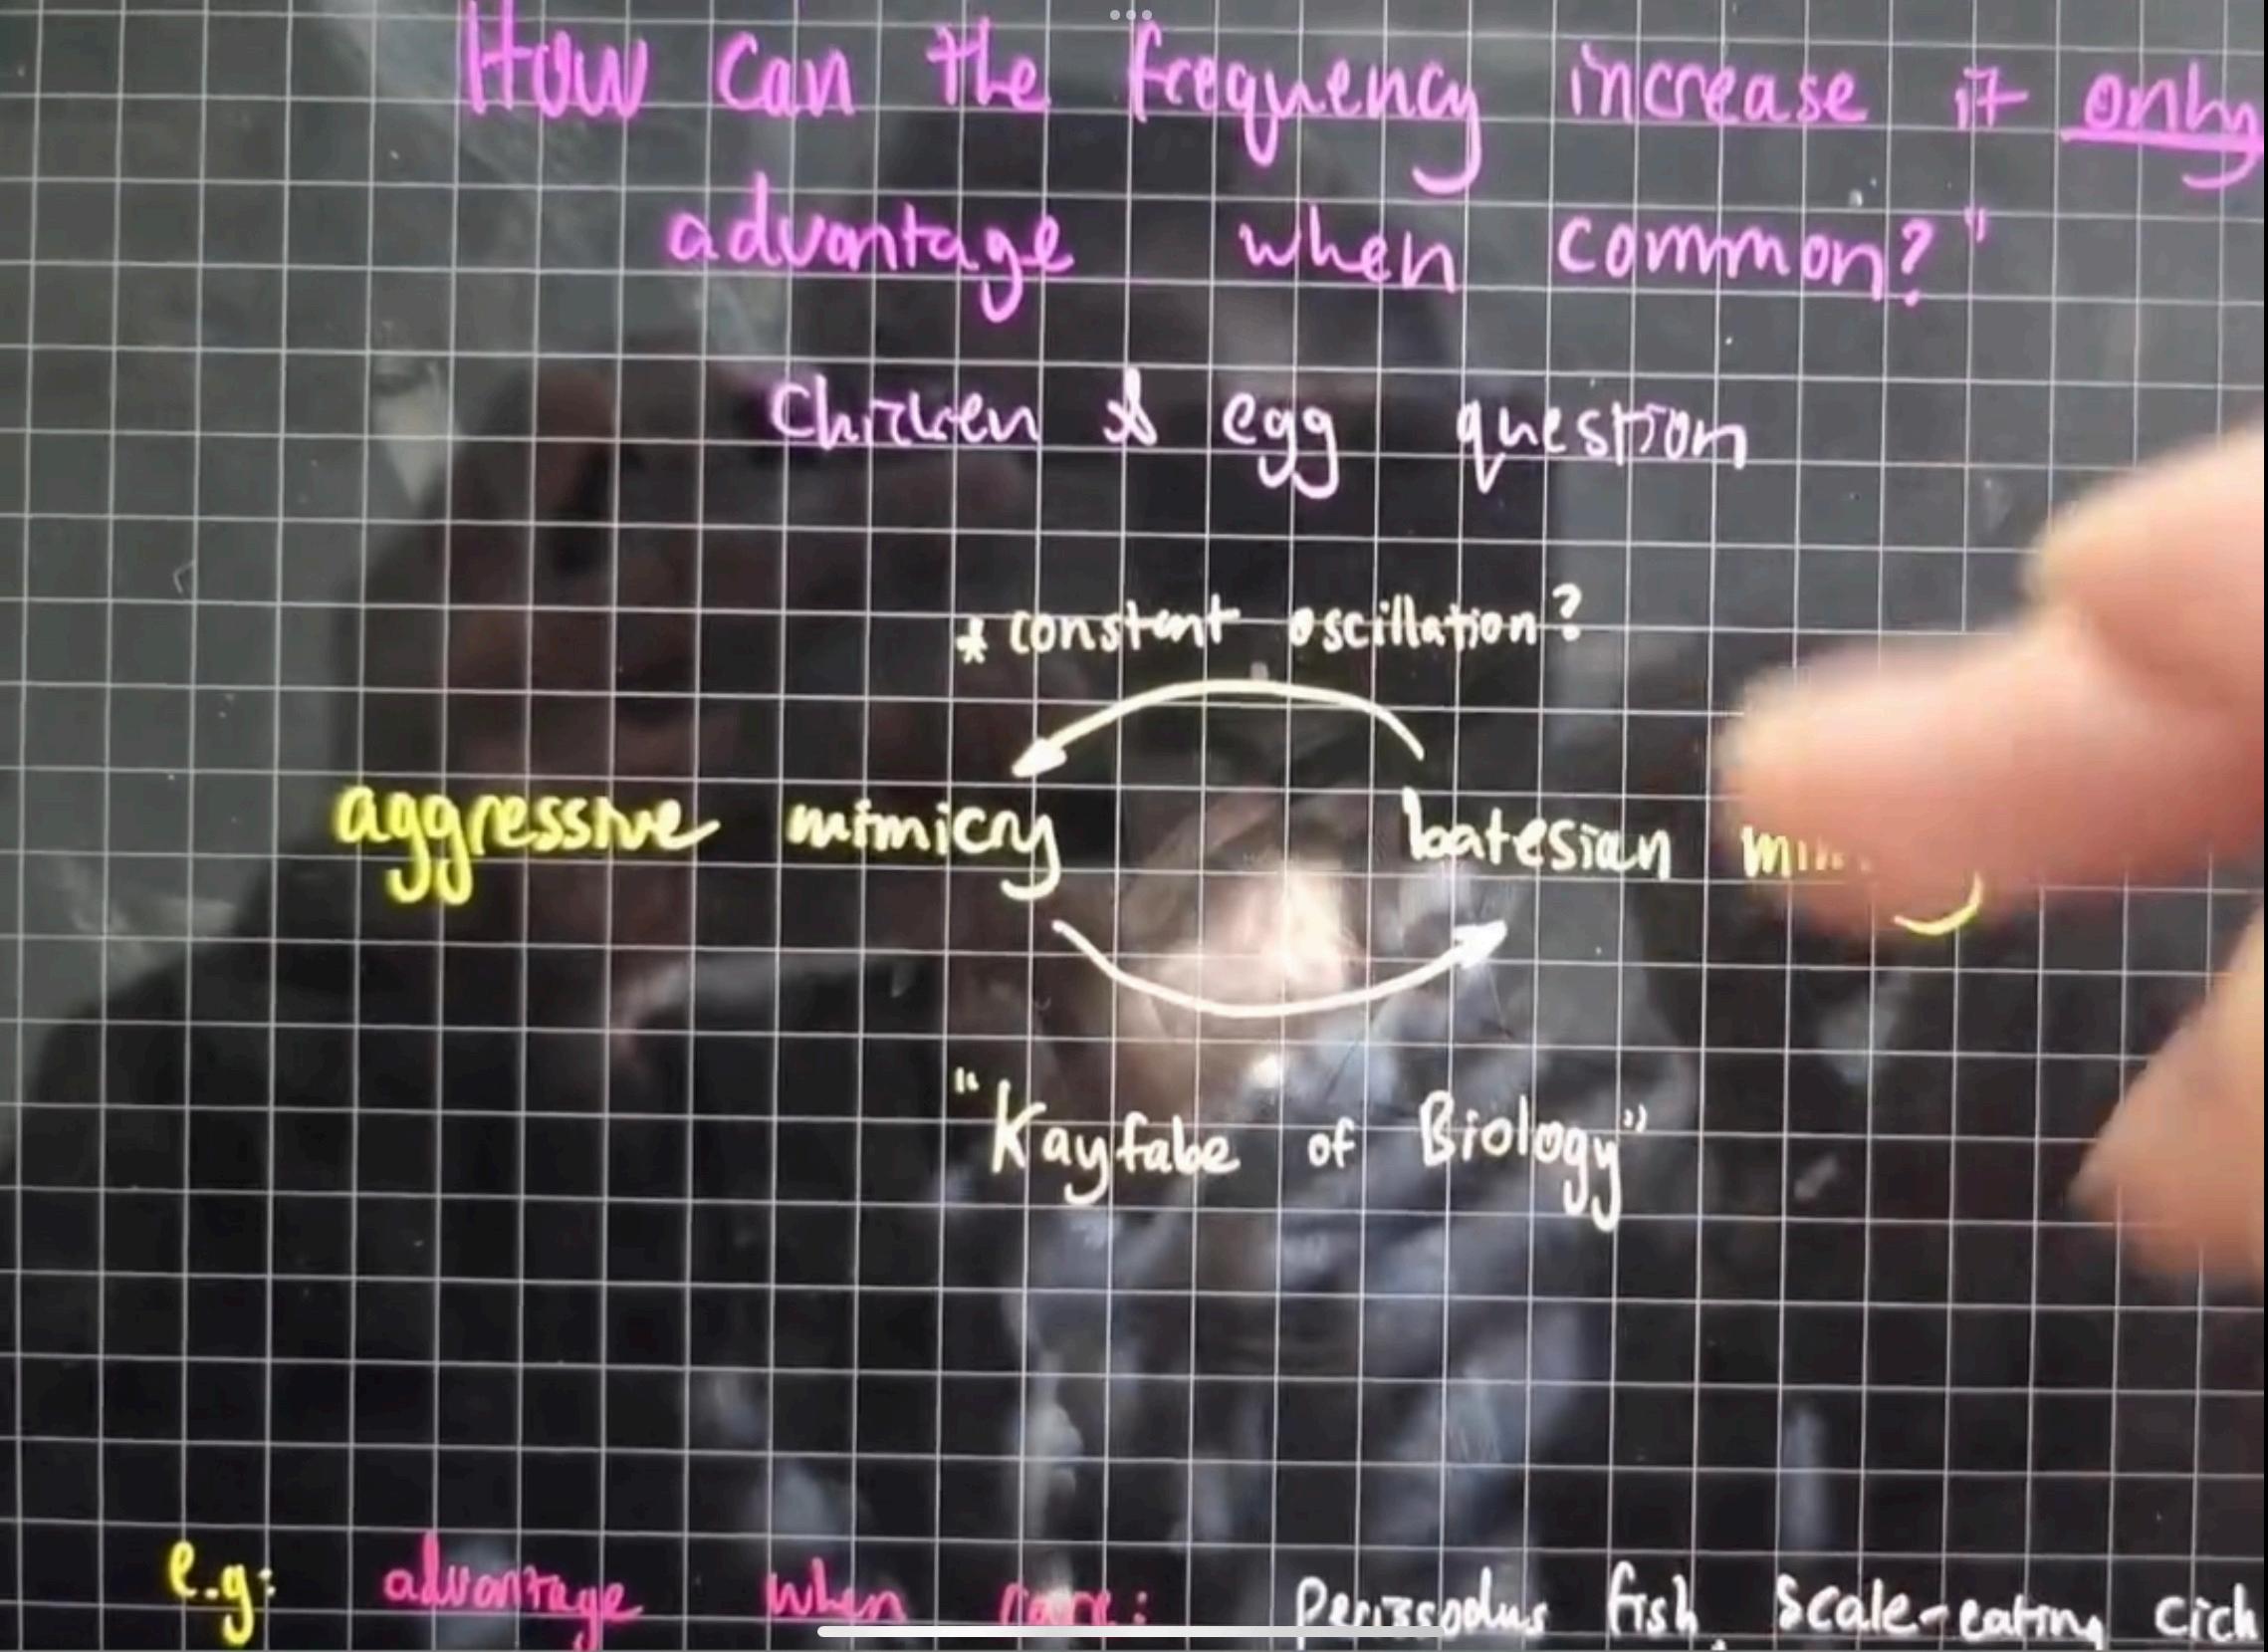 How can the frequency increase if only
advantage when common?"
Chicken & egg question
* constant oscillation?
aggressive mimicry batesian
"Kayfabe of Biology"
e.g: advantage when rare: perissodus fish, scale-eating cich